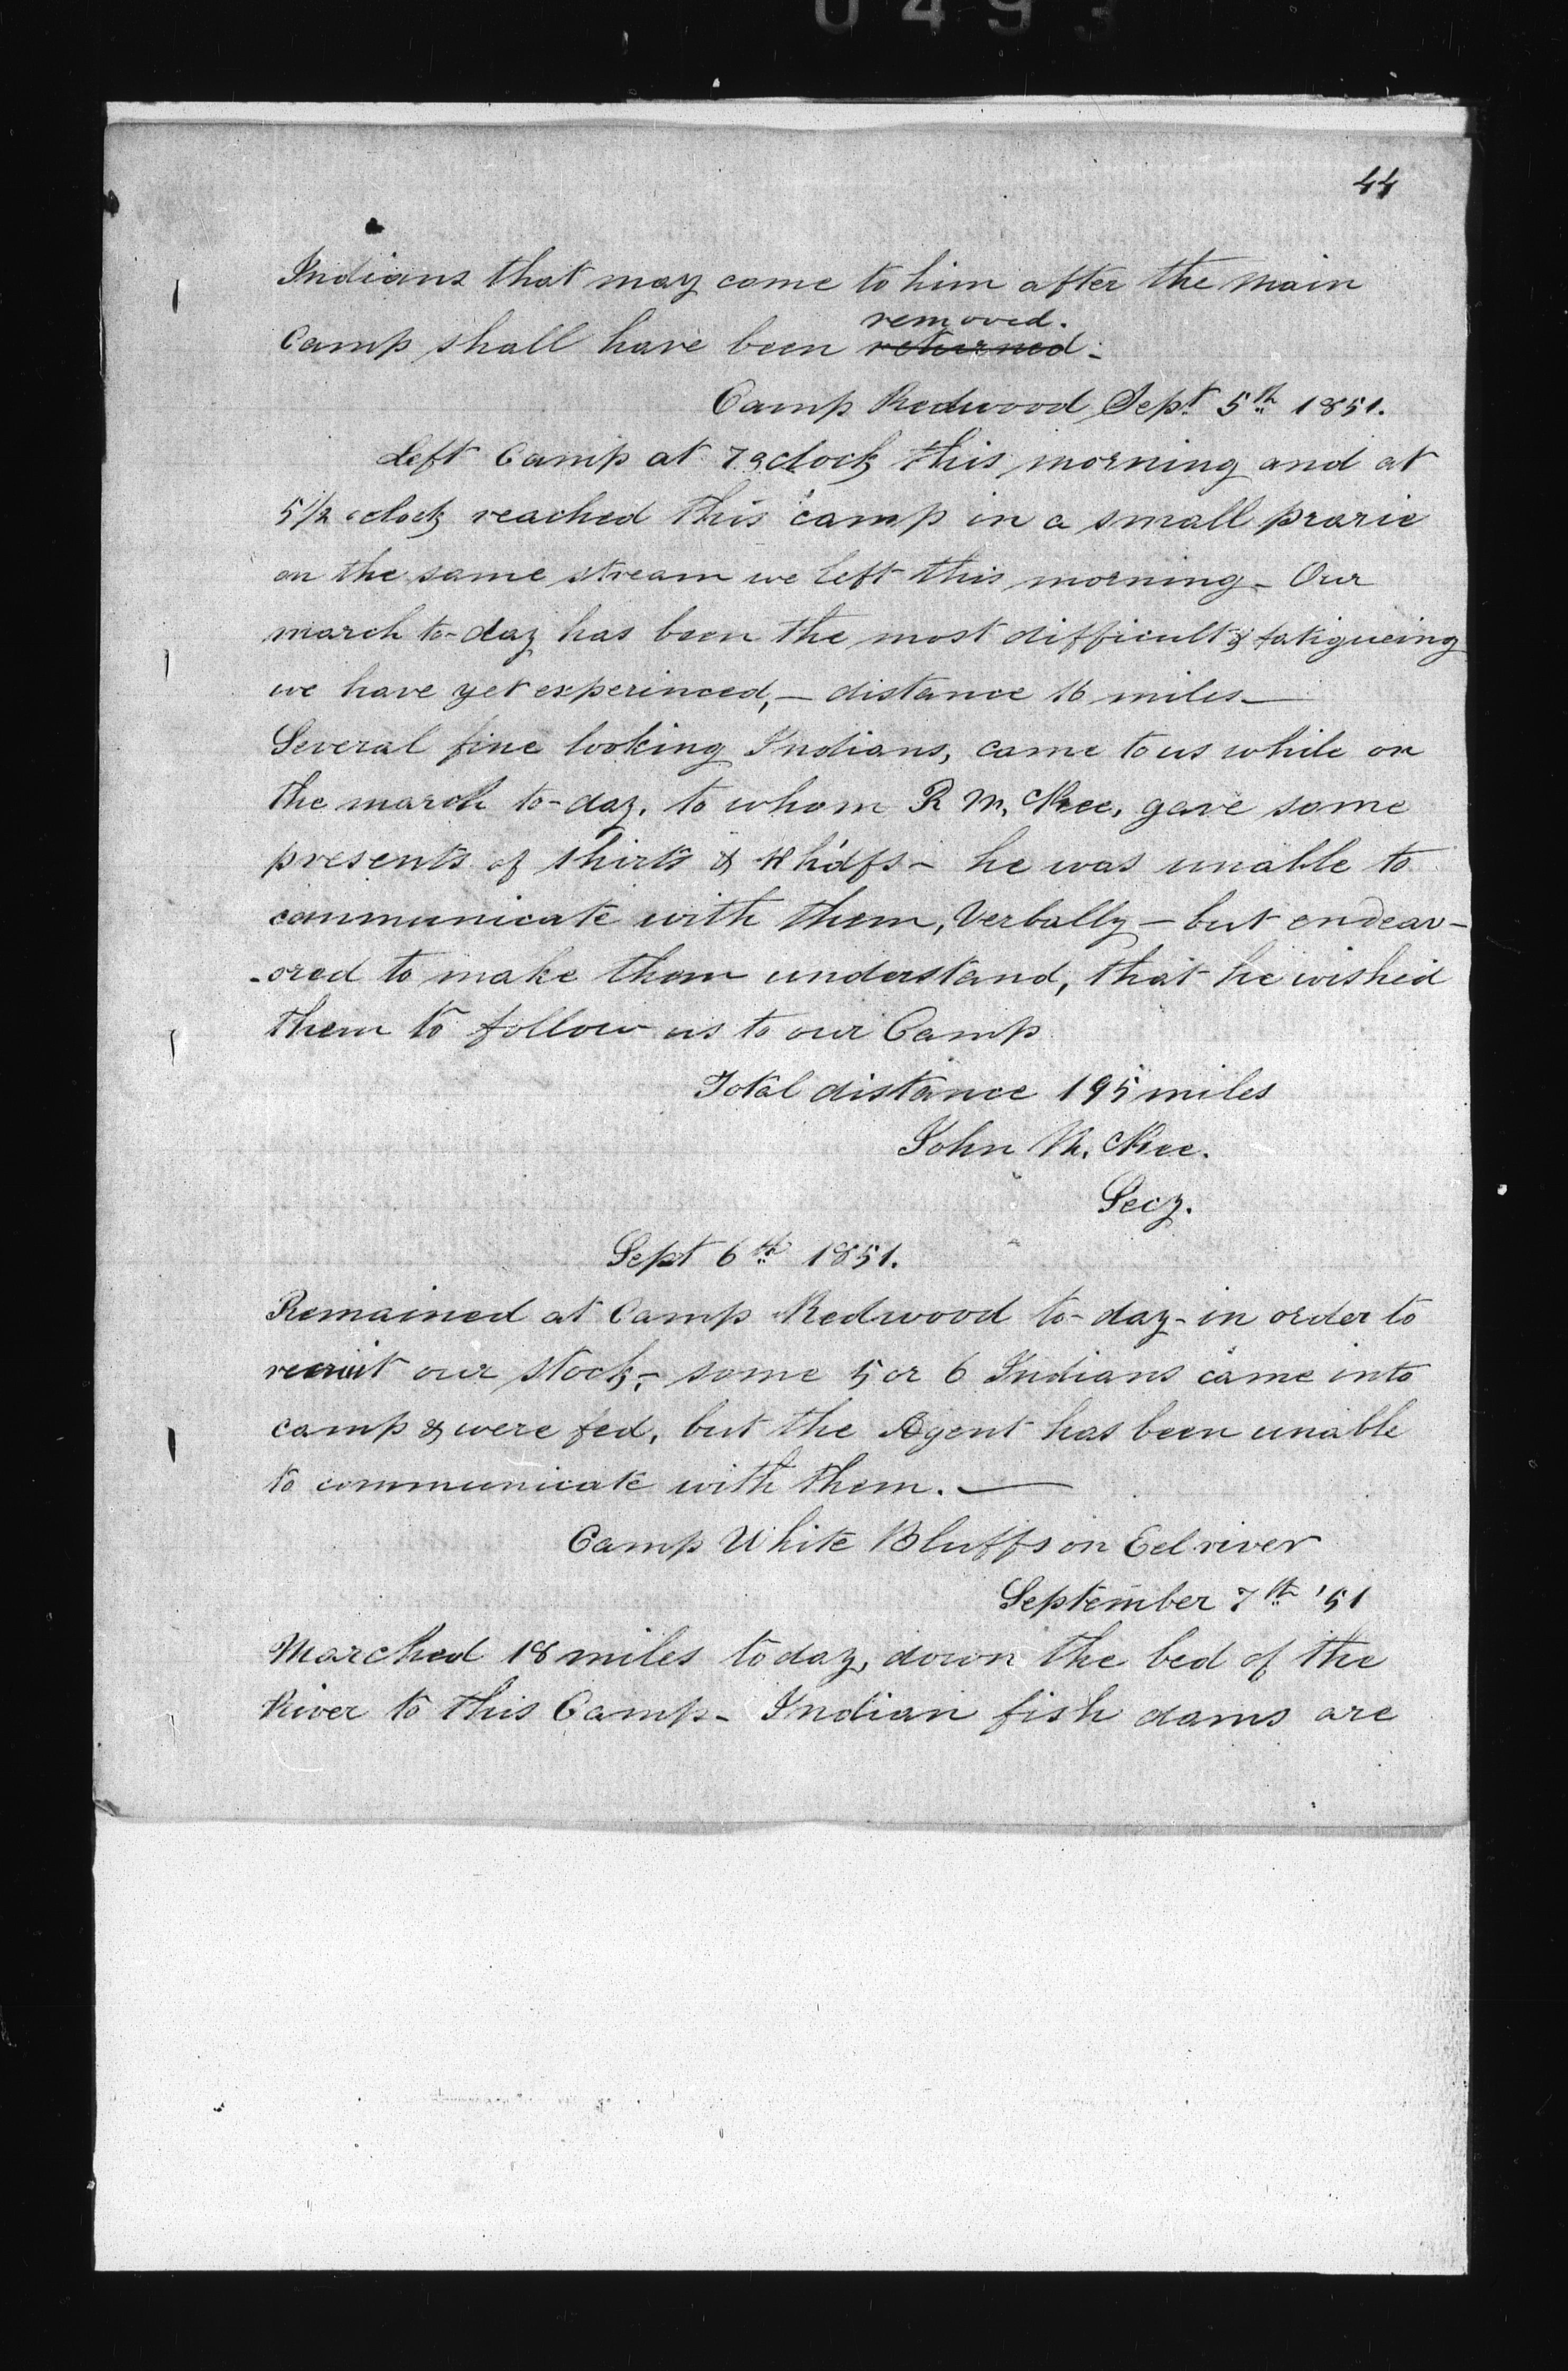 0493
44
Indians that may come to him after the main
removed.
Camp shall have been returned.
Camp Redwood Sept. 5th 1851.
Left Camp at 7 oclock this morning and at
5 1/2 oclock reached this camp in a small prarie
on the same stream we left this morning - Our
march to-day has been the most difficult & fatigueing
we have yet experinced, - distance 16 miles -
Several fine looking Indians, came to us while on
the march to-day, to whom R McKee, gave some
presents of shirts & hdfs - he was unable to
communicate with them, Verbally - but endeav-
-ored to make them understand, that he wished
them to follow us to our Camp
Total distance 195 miles
John McKee.
Secy.
Sept 6th 1851.
Remained at Camp Redwood to-day - in order to
recruit our stock; - some 5 or 6 Indians came into
camp & were fed, but the Agent has been unable
to communicate with them. -
Camp White Bluffs on Eel river
September 7th '51
Marched 18 miles today, down the bed of the
River to this Camp - Indian fish dams are